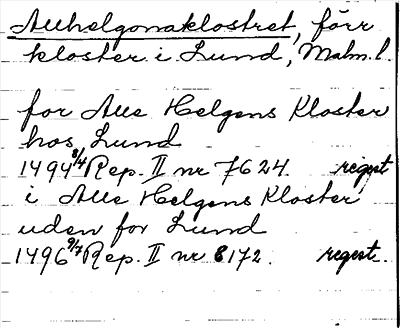 Allhelgonaklostret, förr
kloster i Lund, Malm. l.
for Alle Helgens Kloster
hos Lund
1494 8/4 Rep. II nr 7624. regest
i Alle Helgens Kloster
uden for Lund
1496 9/7 Rep. II nr 8172. regest.